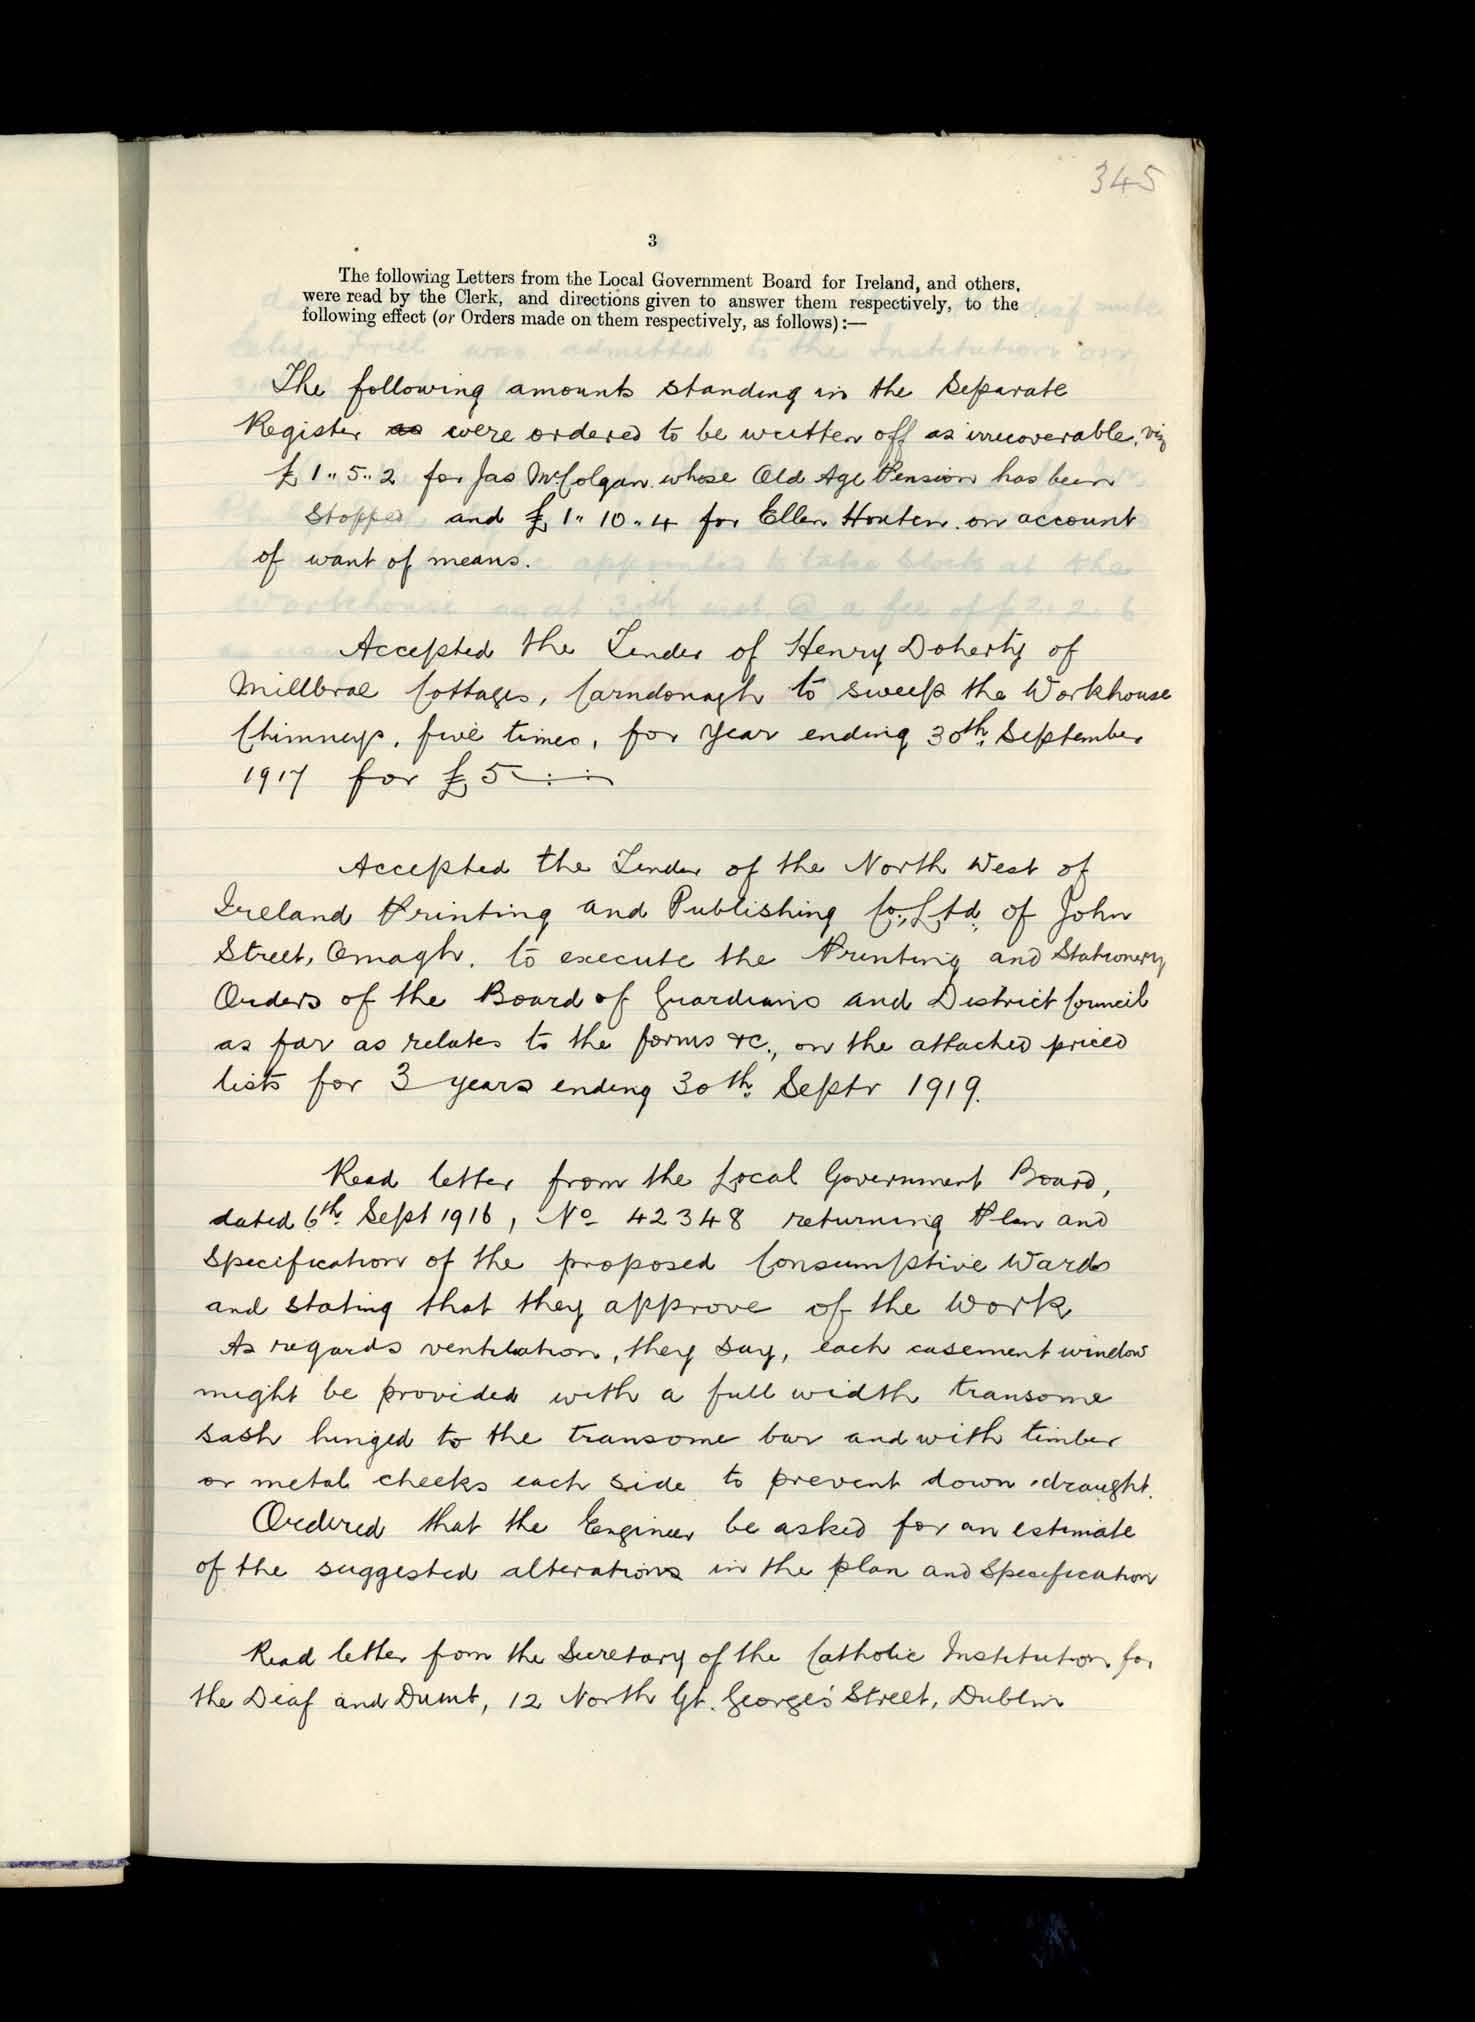 345
3
The following Letters from the Local Government Board for Ireland, and others,
were read by the Clerk, and directions given to answer them respectively, to the
following effect (or Orders made on them respectively, as follows):—
The following amounts standing in the Separate
Register as were ordered to be written off as irrecoverable, viz
£1"5"2 for Jas McColgan whose Old Age Pension has been
stopped and £1"10"4 for Ellen Houten on account
of want of means.
Accepted the Tender of Henry Doherty of
Millbrae Cottages, Carndonagh to sweep the Workhouse
Chimneys, five times, for Year ending 30th September
1917 for £5-:-:-
Accepted the Tender of the North West of
Ireland Printing and Publishing Co., Ltd, of John
Street, Omagh, to execute the Printing and Stationery
Orders of the Board of Guardians and District Council
as far as relates to the forms &c., on the attached priced
lists for 3 years ending 30th Septr 1919.
Read letter from the Local Government Board,
dated 6th Sept 1916, No 42348 returning Plan and
Specification of the proposed Consumptive Wards
and stating that they approve of the Work
As regards ventilation, they say, each casement window
might be provided with a full width transome
sash hinged to the transome bar and with timber
or metal cheeks each side to prevent down-draught.
Ordered that the Engineer be asked for an estimate
of the suggested alterations in the plan and Specification
Read letter from the Secretary of the Catholic Institution for
the Deaf and Dumb, 12 North Gt. George's Street, Dublin